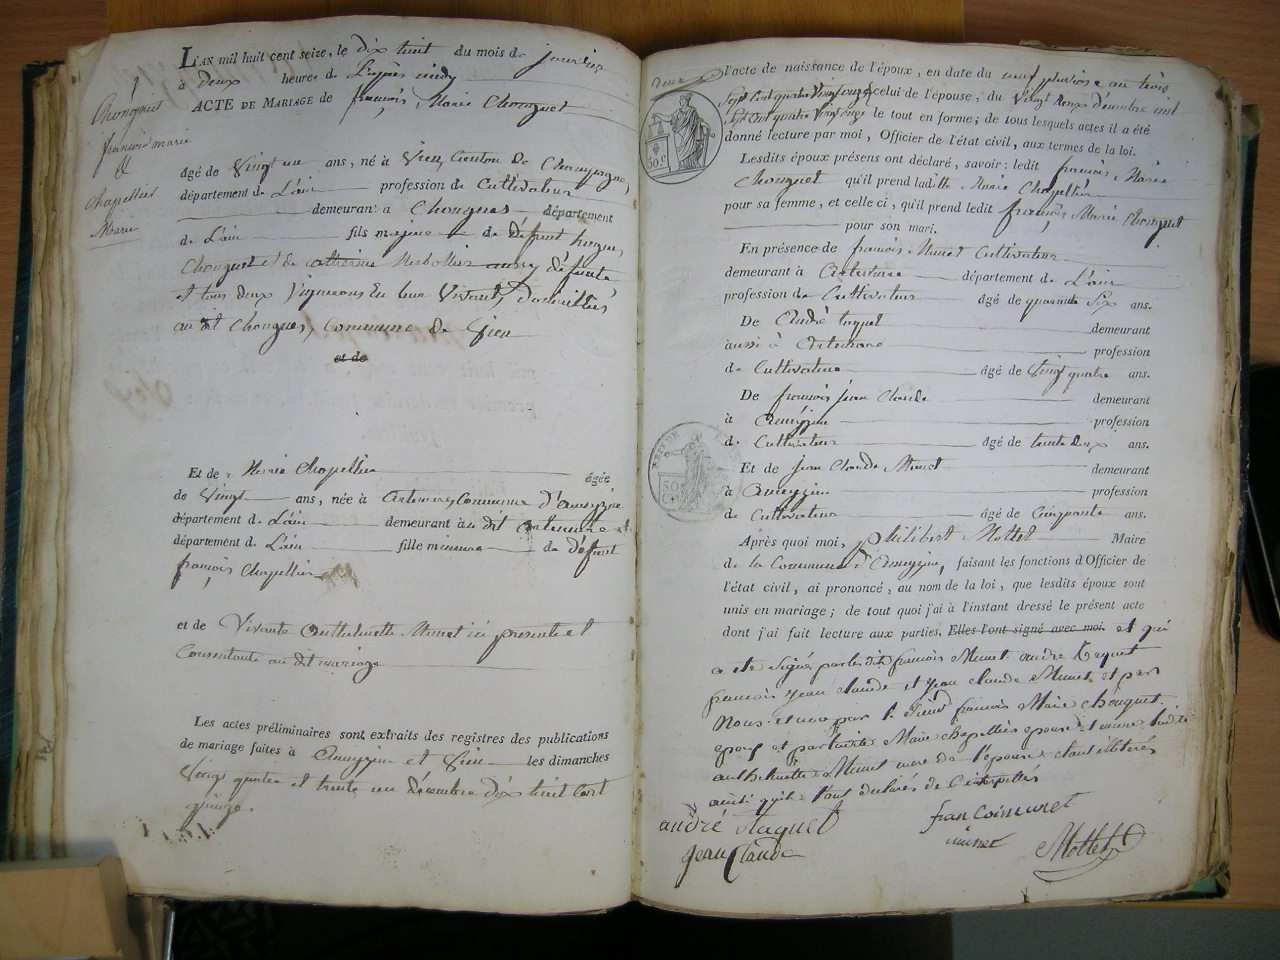 L'AN mil huit cent seize, le dix huit du mois de janvier
à deux heures de l'après midy
ACTE DE MARIAGE de françois Marie Chonguet
Chonguet
françois marie
&
Chapellier
Marie
âgé de Vingt un ans, né à Vieu, Canton de Champagne,
département de L'ain profession de Cultivateur
demeurant à Chongnes département
de L'ain fils majeur de défunt
Chonguet et de Catherine aussy défunte
et tous deux Vignerons En leur Vivant, domiciliés
au dit Chongnes, Commune de Vieu
et de
Et de Marie Chapellier âgée
de Vingt ans, née à Artemare, Commune d'ameyzieu
département de L'ain demeurant au dit artemare
département de L'ain fille mineure de défunt
françois Chapellier
et de Vivante Anthelmette Munet ici présente et
Consentante au dit mariage
Les actes préliminaires sont extraits des registres des publications
de mariage faites à Ameyzieu et Vieu les dimanches
Vingt quatre et trente un décembre dix huit Cent
quinze.
l'acte de naissance de l'époux, en date du neuf pluviose an trois
celui de l'épouse, du Vingt deux décembre mil
Sept Cent quatre Vingt quinze le tout en forme; de tous lesquels actes il a été
donné lecture par moi, Officier de l'état civil, aux termes de la loi.
Lesdits époux présens ont déclaré, savoir: ledit françois Marie
Chonguet qu'il prend ladite Marie Chapellier
pour sa femme, et celle ci, qu'il prend ledit françois Marie Chonguet
pour son mari.
En présence de françois Munet Cultivateur
demeurant à Artemare département de L'ain
profession de Cultivateur âgé de quarante Six ans.
De André taquet demeurant
aussi à Artemare profession
de Cultivateur âgé de Vingt quatre ans.
De françois jean Claude demeurant
à Ameyzieu profession
de Cultivateur âgé de trente deux ans.
Et de jean Claude Munet demeurant
à Ameyzieu profession
de Cultivateur âgé de Cinquante ans.
Après quoi moi, philibert Mottet Maire
de la Commune d'Ameyzieu, faisant les fonctions d'Officier de
l'état civil, ai prononcé, au nom de la loi, que lesdits époux sont
unis en mariage; de tout quoi j'ai à l'instant dressé le présent acte
dont j'ai fait lecture aux parties. Elles l'ont signé avec moi. et qui
a été Signé par les dits francois Munet, andre taquet
francois jean claude et jean claude Munet et par
Nous et non par le Sieur francois Marie Chonguet
epoux et par la dite Marie Chapellier epouse
anthelmette Munet mere de l'épouse étant illiterés
ainsi qu'ils l'ont déclarés de
andré taquet
francoimunet
jean Claude
munet
Mottet